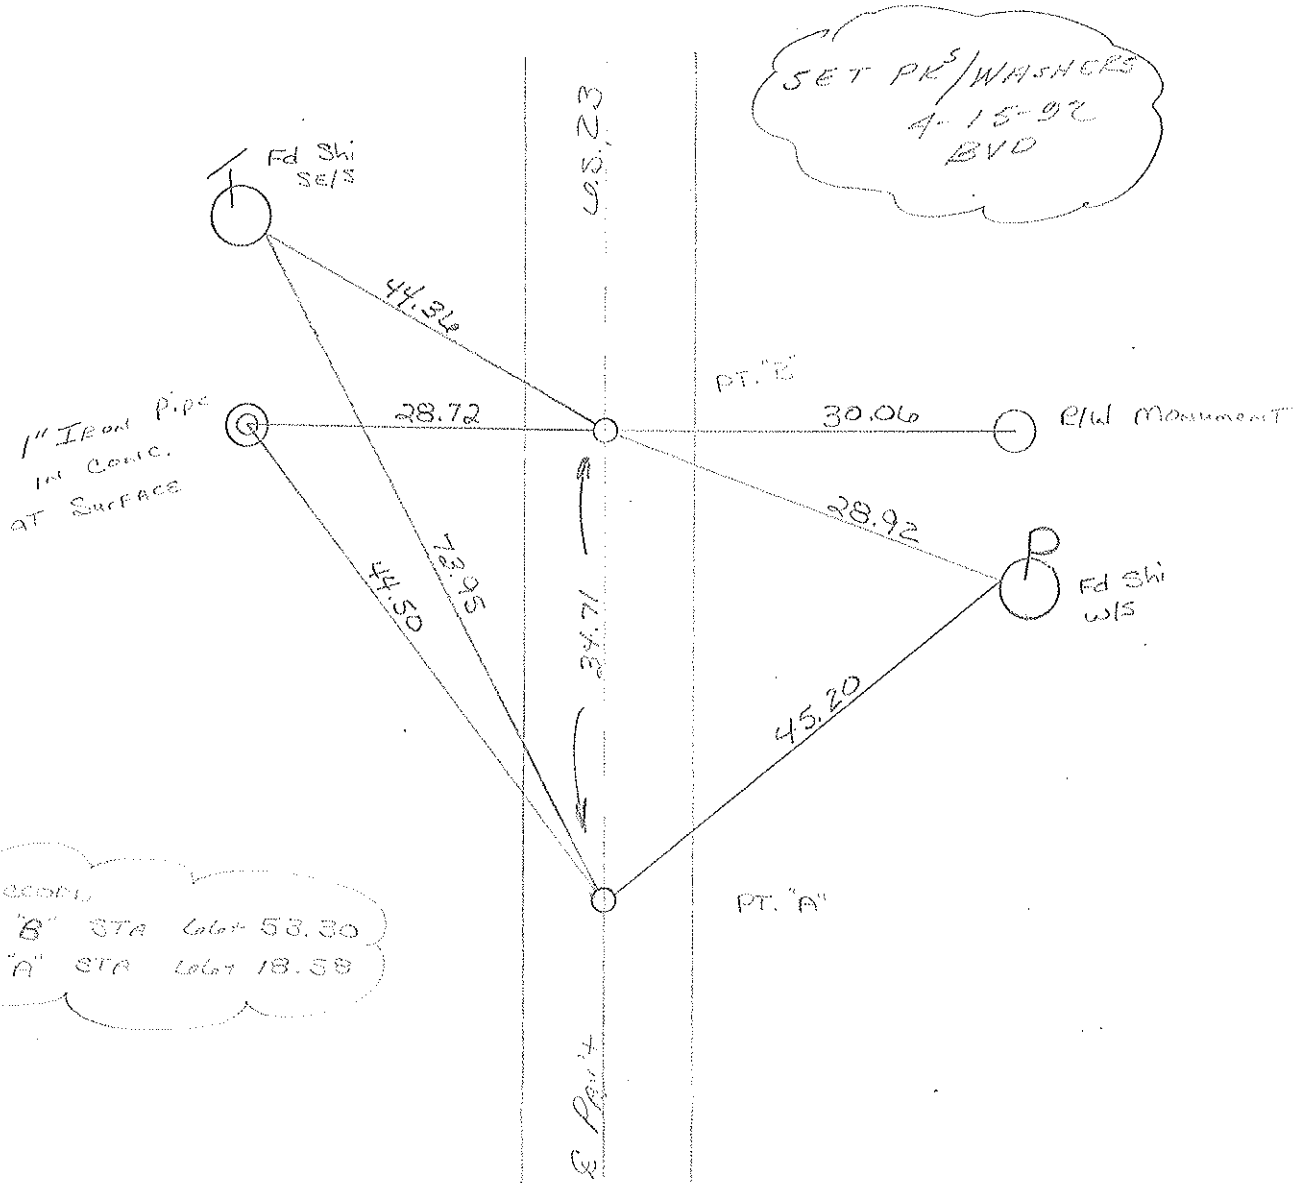 SET PKS/WASHERS
4-15-92
BVD
Fd Shi
SE/S
44.36
PT. "B"
1" Iron Pipe
in Conc.
at Surface
28.72
30.06
R/W Monument
28.92
Fd Shi
W/S
73.95
44.50
34.71
45.20
PT. "A"
"B" STA 66+53.30
"A" STA 66+18.58
℄ Pav't